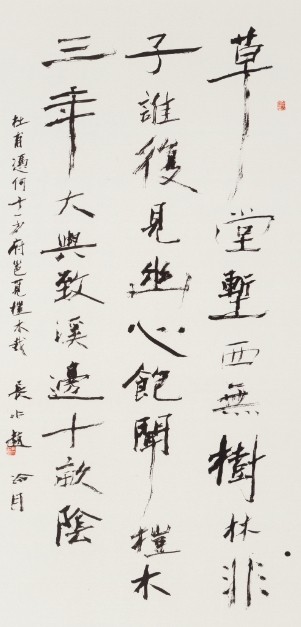 草堂塹西無樹林非
子誰復見幽心飽聞榿木
三年大與致溪邊十畝陰
杜甫憑何十一少府邕覓榿木栽 長水趙